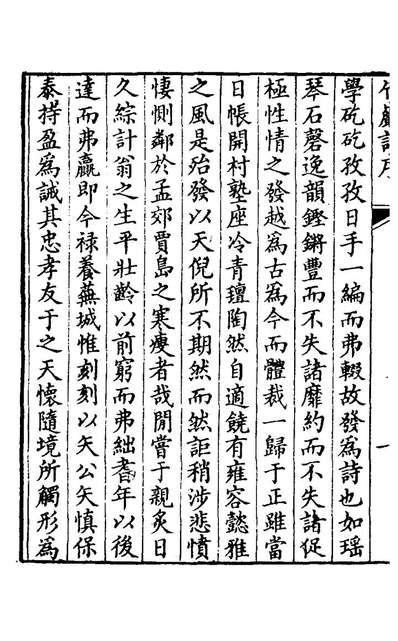 學矻矻孜孜日手一編而弗輟故發爲詩也如瑶
琴石磬逸韻鏗鏘豐而不失諸靡約而不失諸促
極性情之發越爲古爲今而體裁一歸于正雖當
日帳開村塾座冷青氊陶然自適饒有雍容懿雅
之風是殆發以天倪所不期然而然詎稍涉悲憤
悽惻鄰於孟郊賈島之寒瘦者哉閒嘗于親炙日
久綜計翁之生平壯齡以前窮而弗絀耆年以後
達而弗贏即今禄養蕪城惟刻刻以矢公矢慎保
泰持盈爲誡其忠孝友于之天懷隨境所觸形爲